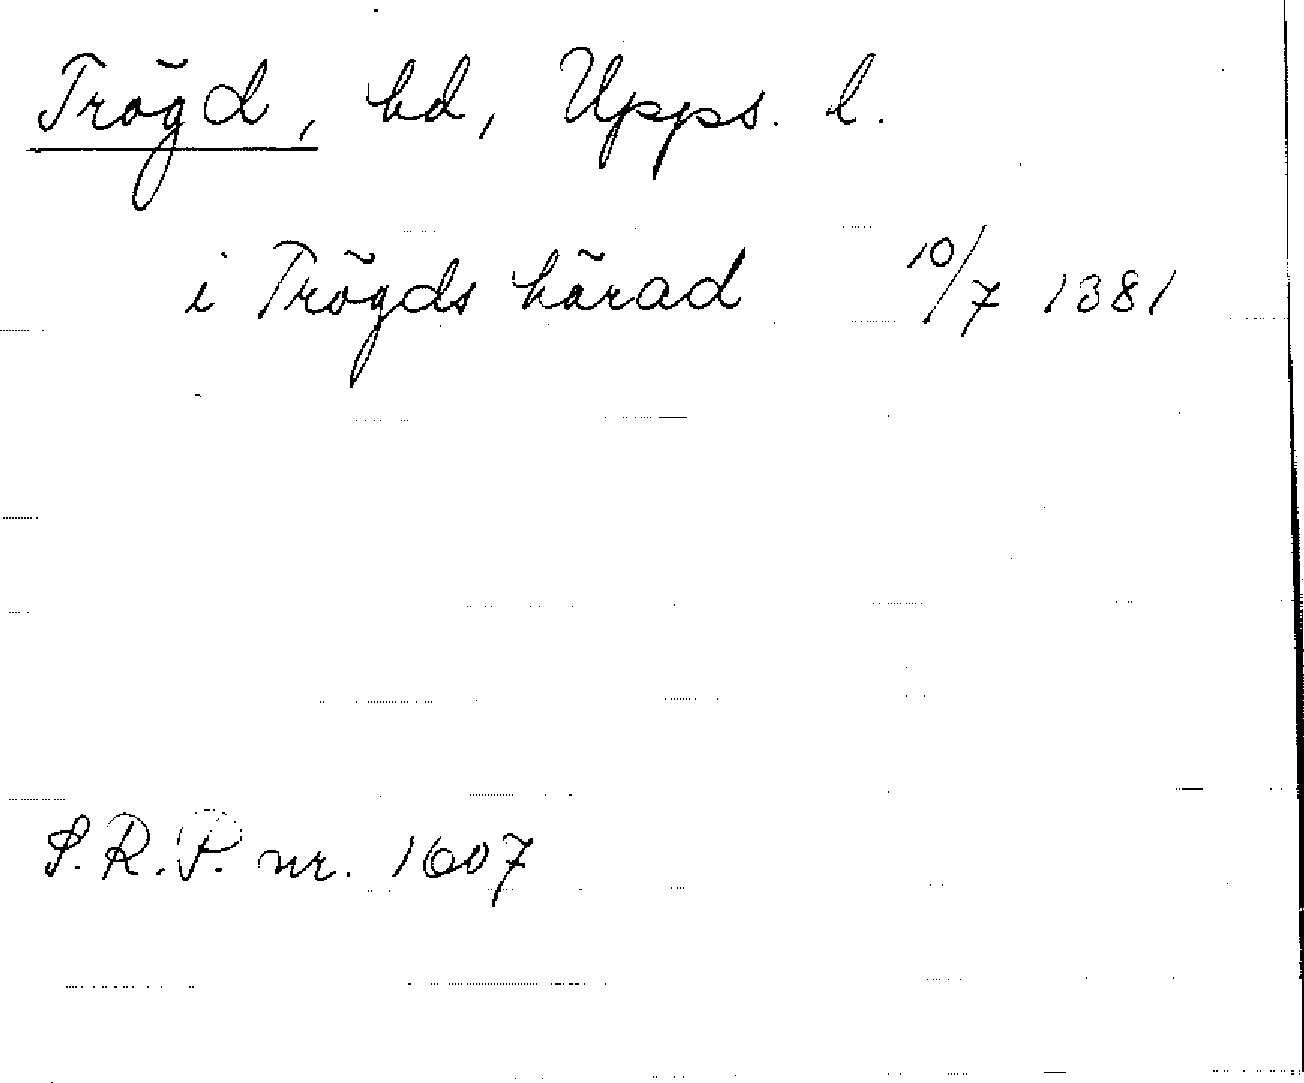 Trögd, hd, Upps. l.
i Trögds härad 10/7 1381
S.R.P. nr. 1607